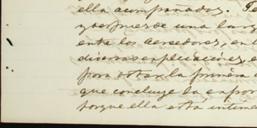 ella acompañados. Se
y despues de una larg
entre los acreedores, en l
diversas esplicaciones, e
para votar la primera d
que concluye la espos
porque ella está intima